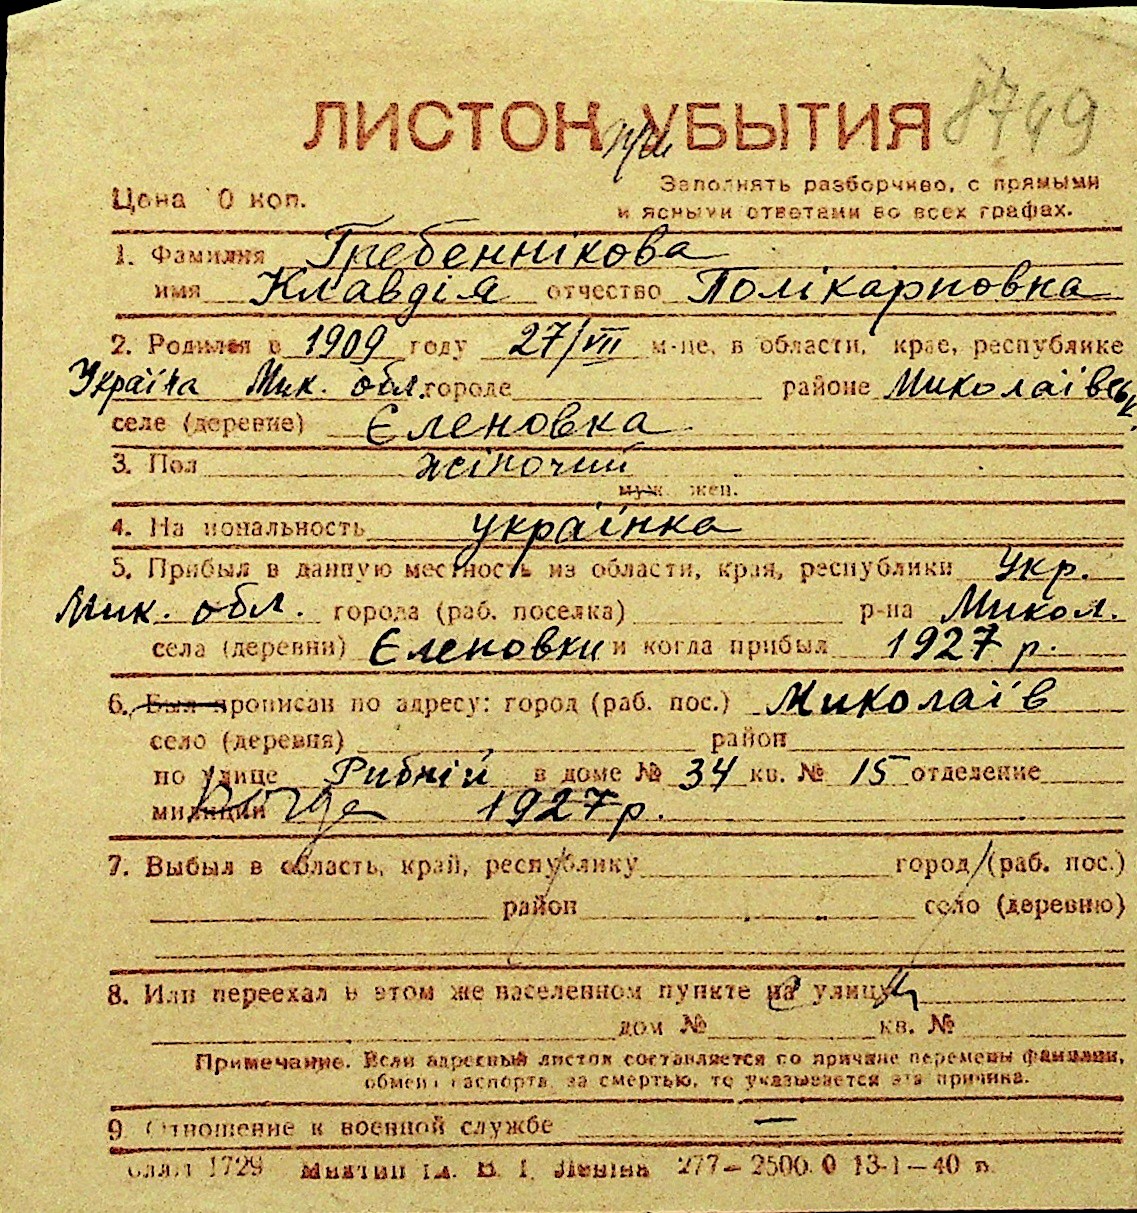 ЛИСТОК при УБЫТИЯ 8749
Цена 0 коп.
Заполнять разборчиво, с прямыми
и ясными ответами во всех графах.
1. Фамилия Гребеннікова
имя Клавдія отчество Полікарповна
2. Родился в 1909 году 27/VII м-це, в области, крае, республике
Україна Мик. обл. городе районе Миколаївськ.
селе (деревне) Єленовка
3. Пол жіночий
муж. жен.
4. На иональность українка
5. Прибыл в данную местность из области, края, республики Укр.
Мик. обл. города (раб. поселка) р-на Микол.
села (деревни) Єленовки и когда прибыл 1927 р.
6. Был прописан по адресу: город (раб. пос.) Миколаїв
село (деревня) район
по улице Рибній в доме № 34 кв. № 15 отделение
милиции 1927 р.
7. Выбыл в область, край, республику город (раб. пос.)
район село (деревню)
8. Или переехал в этом же населенном пункте на улицу
дом № кв. №
Примечание. Если адресный листок составляется по причине перемены фамилии,
обмена паспорта, за смертью, то указывается эта причина.
9 Отношение к военной службе —
1729 В. І. Леніна 277—2500. 0 13-1—40 п.